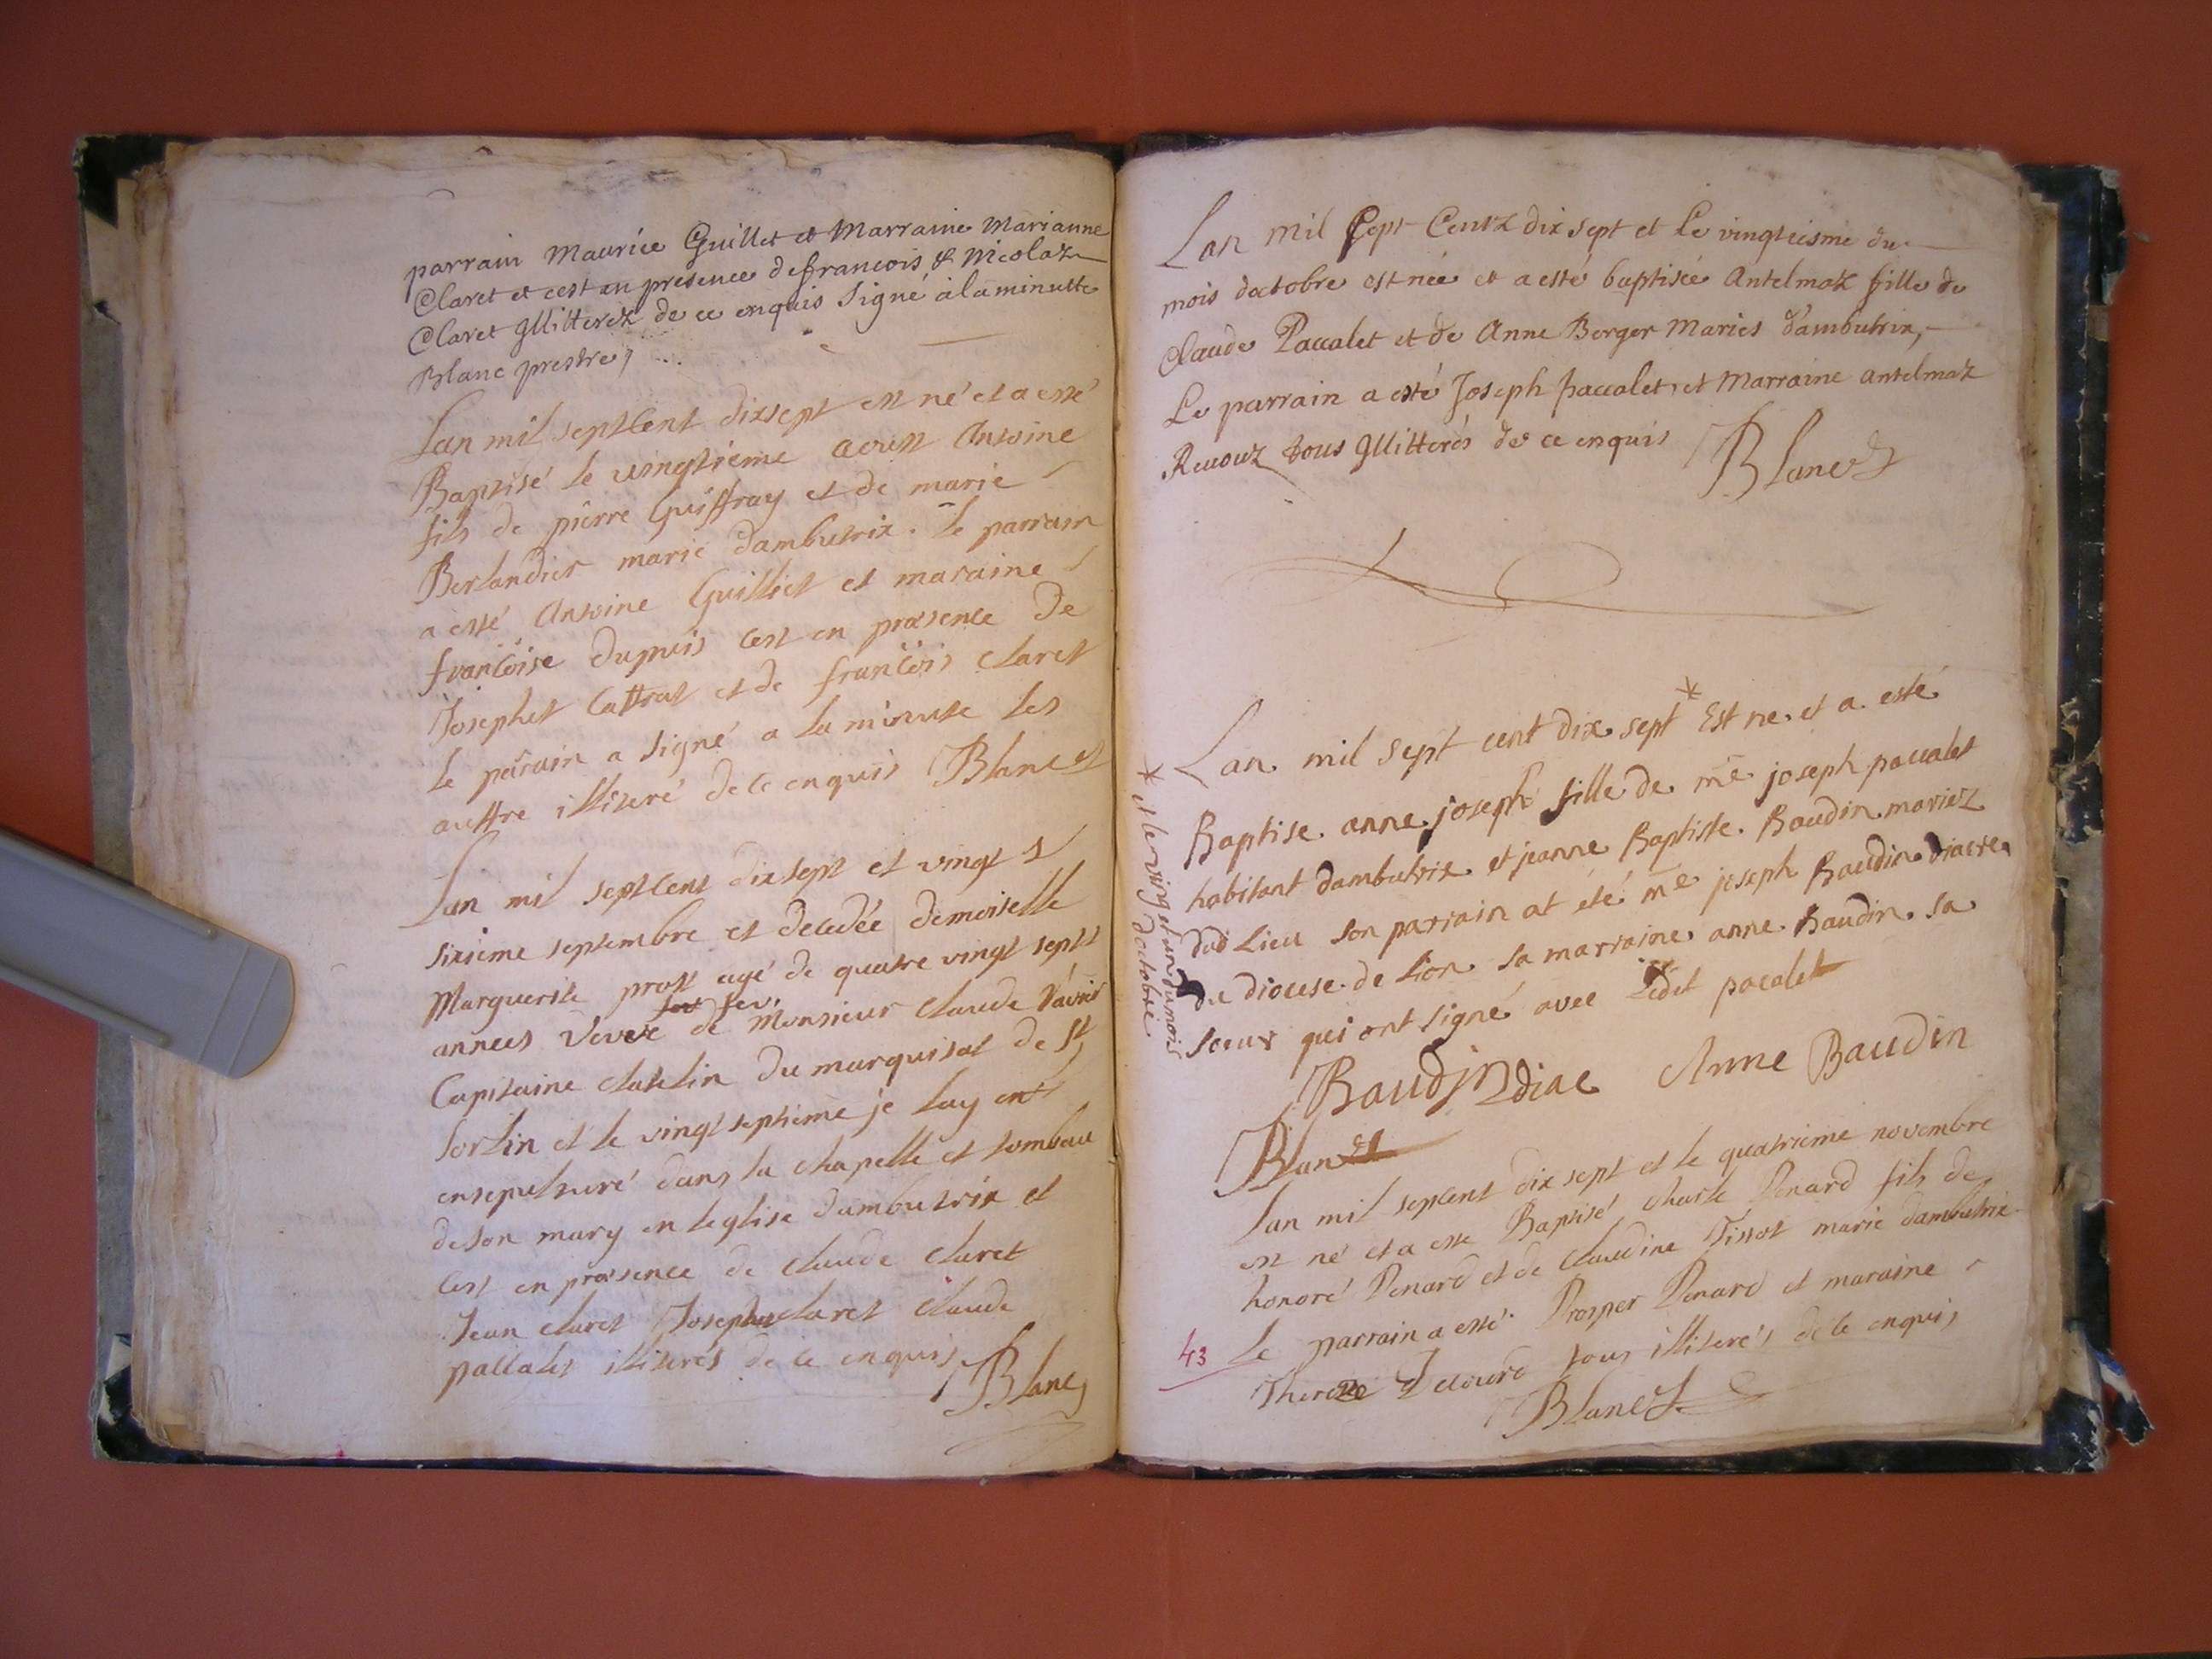 parrain Maurice Guillet et Marraine Marianne
Claret et cest en presence de francois & Nicolaz
Claret Illitterez de ce enquis Signé a la minutte
Blanc prestre
Lan mil sept Cent dixsept est né et a esté
Baptisé le vingtrieme aoust Antoine
fils de pierre Guiffray et de marie
Berlandier marié dambutrix. le parrain
a esté Antoine Guilliet et maraine
francoise dupuis cest en præsence de
Josephet Cattrat et de francois Claret
le parain a signé a la minute les
auttre illiteré de ce enquis Blanc
Lan mil sept Cent dixsept et vingt
sixieme septembre et decedée demoiselle
Marguerite prost agé de quatre vingt sept
annees veuve de feu Monsieur Claude
Capitaine Chatelin du marquisat de St
Sorlin et le vingt septieme je lay
ensepulturé dans la chapelle et tombeau
de son mary en leglise dambutrix et
cest en præsence de Claude Claret
Jean Claret Joseph Claret Claude
pallalet illiterés de ce enquis
Blanc
Lan mil Sept Centz dix sept et Le vingtiesme du
mois doctobre est née et a esté baptisée Antelmaz fille de
Claude Paccalet et de Anne Berger Mariés d'ambutrix,
Le parrain a esté Joseph paccalet et Marraine antelmaz
Revouz tous Illitterés de ce enquis
Blanc
Lan mil sept cent dix sept * Est ne et a esté
Baptise anne joseph fille de me joseph paccalet
habitant dambutrix et jeanne Baptiste Baudin mariez
dud Lieu son parrain at eté me joseph Baudin diacre
du diocese de Lion sa marraine anne Baudin sa
soeur qui ont signé avec Ledit pacalet
* et le vingt et un du mois
doctobre
Baudin diac Anne Baudin
Blanc
Lan mil septcent dix sept et le quatrieme novembre
est né et a esté Baptisé Charle Penard fils de
honoré Penard et de Claudine Tissot marié dambutrix
43 Le parrain a esté Prosper Penard et maraine
Therese tous illiterés de ce enquis
Blanc